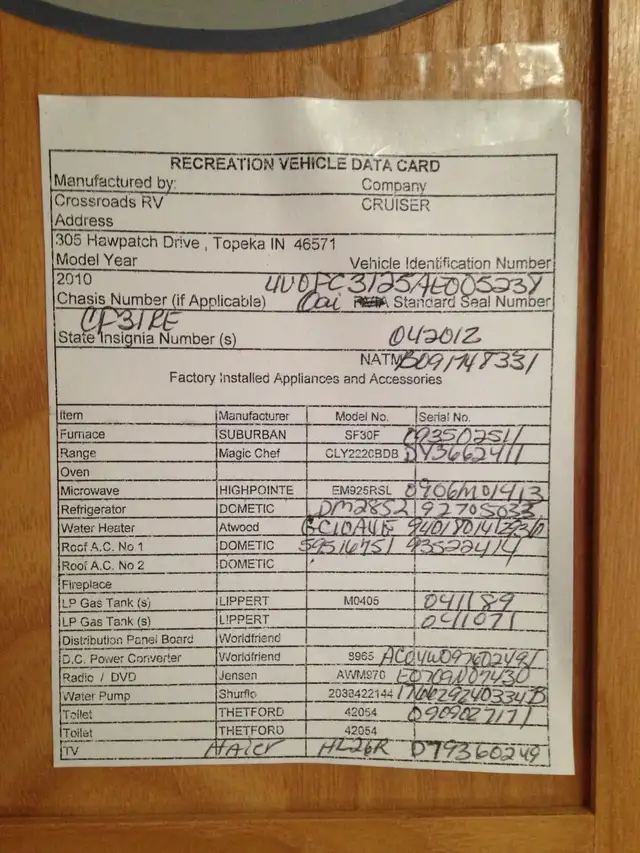 RECREATION VEHICLE DATA CARD
Manufactured by: Company
Crossroads RV CRUISER
Address
305 Hawpatch Drive , Topeka IN 46571
Model Year Vehicle Identification Number
2010 4V0FC3125AE005238
Chasis Number (if Applicable) Standard Seal Number
CF31RE
State Insignia Number (s) 042012
NATM B091748331
Factory Installed Appliances and Accessories
Item Manufacturer Model No. Serial No.
Furnace SUBURBAN SF30F 093502511
Range Magic Chef CLY2220BDB
Oven
Microwave HIGHPOINTE EM925RSL 0906M01413
Refrigerator DOMETIC DM2852 92705033
Water Heater Atwood
Roof A.C. No 1 DOMETIC 59516751 93522414
Roof A.C. No 2 DOMETIC
Fireplace
LP Gas Tank (s) LIPPERT M0405 041189
LP Gas Tank (s) LIPPERT 041071
Distribution Panel Board Worldfriend
D.C. Power Converter Worldfriend 8965
Radio / DVD Jensen AWM970 E0709N07430
Water Pump Shurflo 2038422144
Toilet THETFORD 42054
Toilet THETFORD 42054
TV HAIER HL26R D79360249